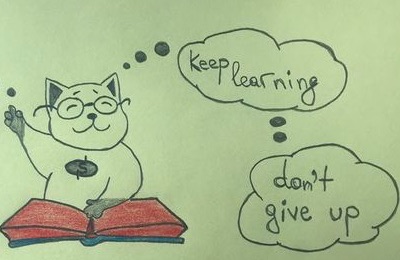 keep
learning
don't
give up
$